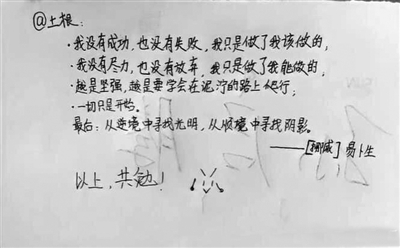 @土根:
·我没有成功,也没有失败,我只是做了我该做的;
·我没有尽力,也没有放弃,我只是做了我能做的;
·越是坚强,越是要学会在泥泞的路上爬行;
·一切只是开始。
最后:从逆境中寻找光明,从顺境中寻找阴影。
——[挪威]易卜生
以上,共勉!